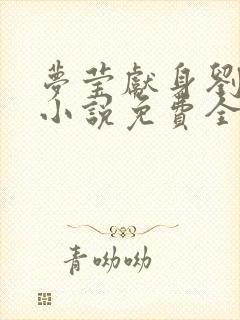 夢莹獻身劉
小說免費全
青呦呦